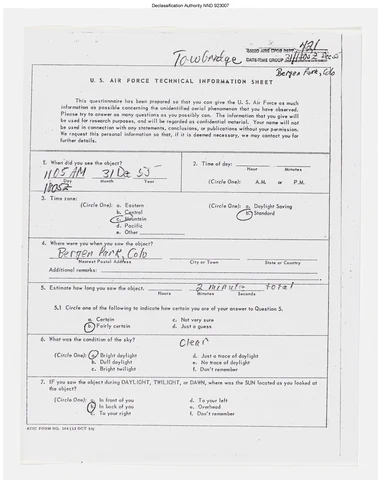 Declassification Authority NND 923007
421
Trowbridge
DATE-TIME GROUP 31/1805Z Dec 55
Bergen Park, Colo
U. S. AIR FORCE TECHNICAL INFORMATION SHEET
This questionnaire has been prepared so that you can give the U. S. Air Force as much
information as possible concerning the unidentified aerial phenomenon that you have observed.
Please try to answer as many questions as you possibly can. The information that you give will
be used for research purposes, and will be regarded as confidential material. Your name will not
be used in connection with any statements, conclusions, or publications without your permission.
We request this personal information so that, if it is deemed necessary, we may contact you for
further details.
1. When did you see the object?
11:05 AM 31 Dec 55
Day Month Year
1805Z
2. Time of day:
Hour Minutes
(Circle One): A.M. or P.M.
3. Time zone:
(Circle One): a. Eastern
b. Central
c. Mountain
d. Pacific
e. Other
(Circle One): a. Daylight Saving
b. Standard
4. Where were you when you saw the object?
Bergen Park, Colo
Nearest Postal Address City or Town State or Country
Additional remarks:
5. Estimate how long you saw the object. 2 minutes total
Hours Minutes Seconds
5.1 Circle one of the following to indicate how certain you are of your answer to Question 5.
a. Certain c. Not very sure
b. Fairly certain d. Just a guess
6. What was the condition of the sky? Clear
(Circle One): a. Bright daylight d. Just a trace of daylight
b. Dull daylight e. No trace of daylight
c. Bright twilight f. Don't remember
7. IF you saw the object during DAYLIGHT, TWILIGHT, or DAWN, where was the SUN located as you looked at
the object?
(Circle One): a. In front of you d. To your left
b. In back of you e. Overhead
c. To your right f. Don't remember
ATIC FORM NO. 164 (13 OCT 54)